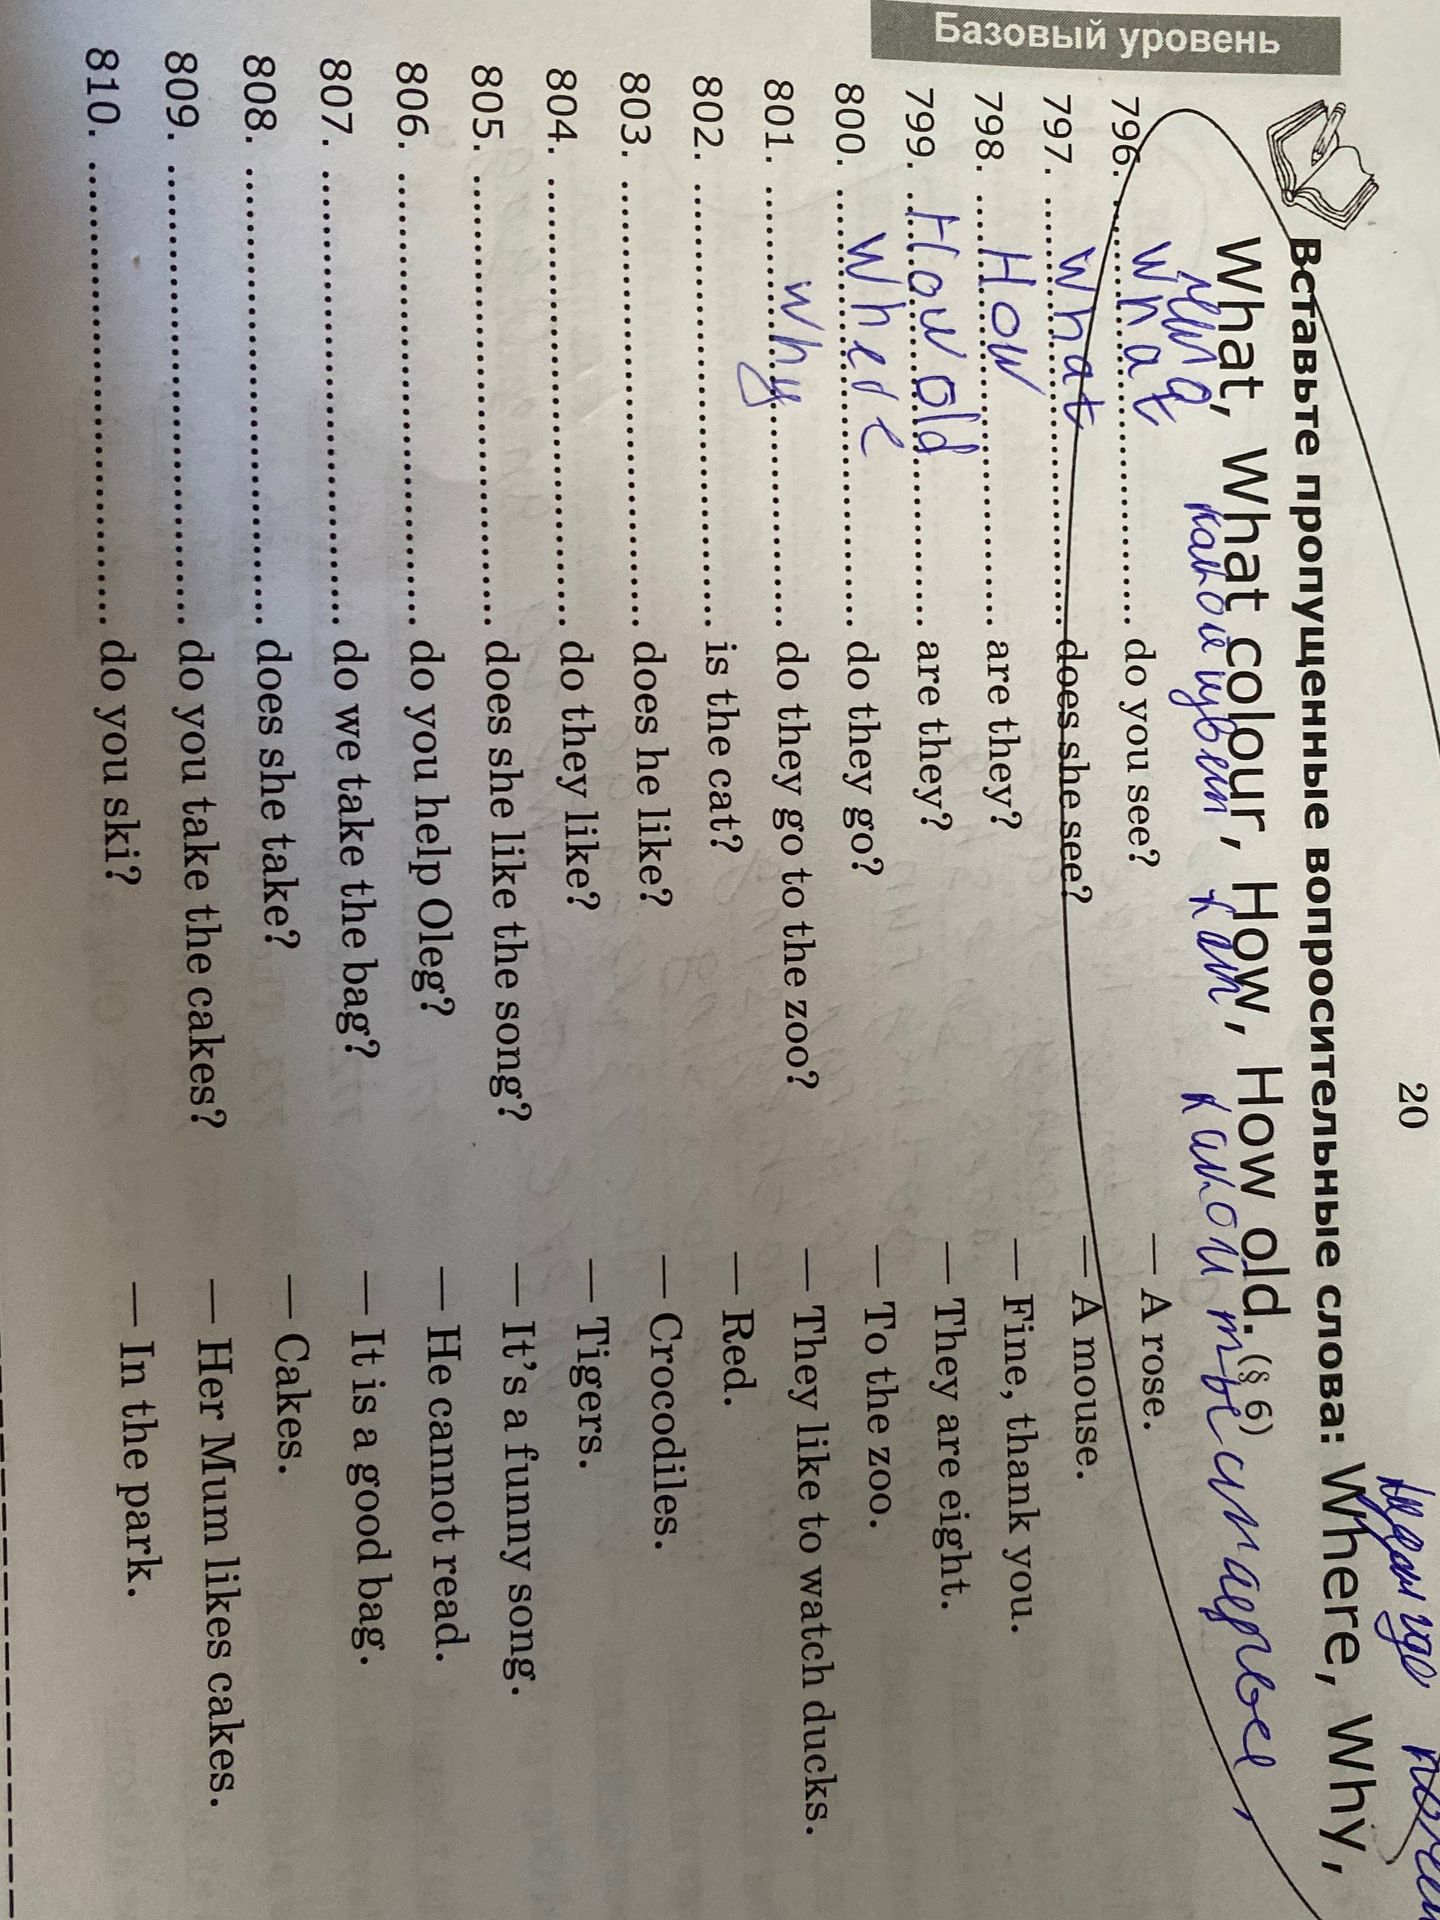 20
Базовый уровень
Вставьте пропущенные вопросительные слова: Where, Why,
What, What colour, How, How old. (§ 6)
какой цвет как какой
796. What do you see? — A rose.
797. What does she see? — A mouse.
798. How are they? — Fine, thank you.
799. How old are they? — They are eight.
800. Where do they go? — To the zoo.
801. Why do they go to the zoo? — They like to watch ducks.
802. is the cat? — Red.
803. does he like? — Crocodiles.
804. do they like? — Tigers.
805. does she like the song? — It's a funny song.
806. do you help Oleg? — He cannot read.
807. do we take the bag? — It is a good bag.
808. does she take? — Cakes.
809. do you take the cakes? — Her Mum likes cakes.
810. do you ski? — In the park.